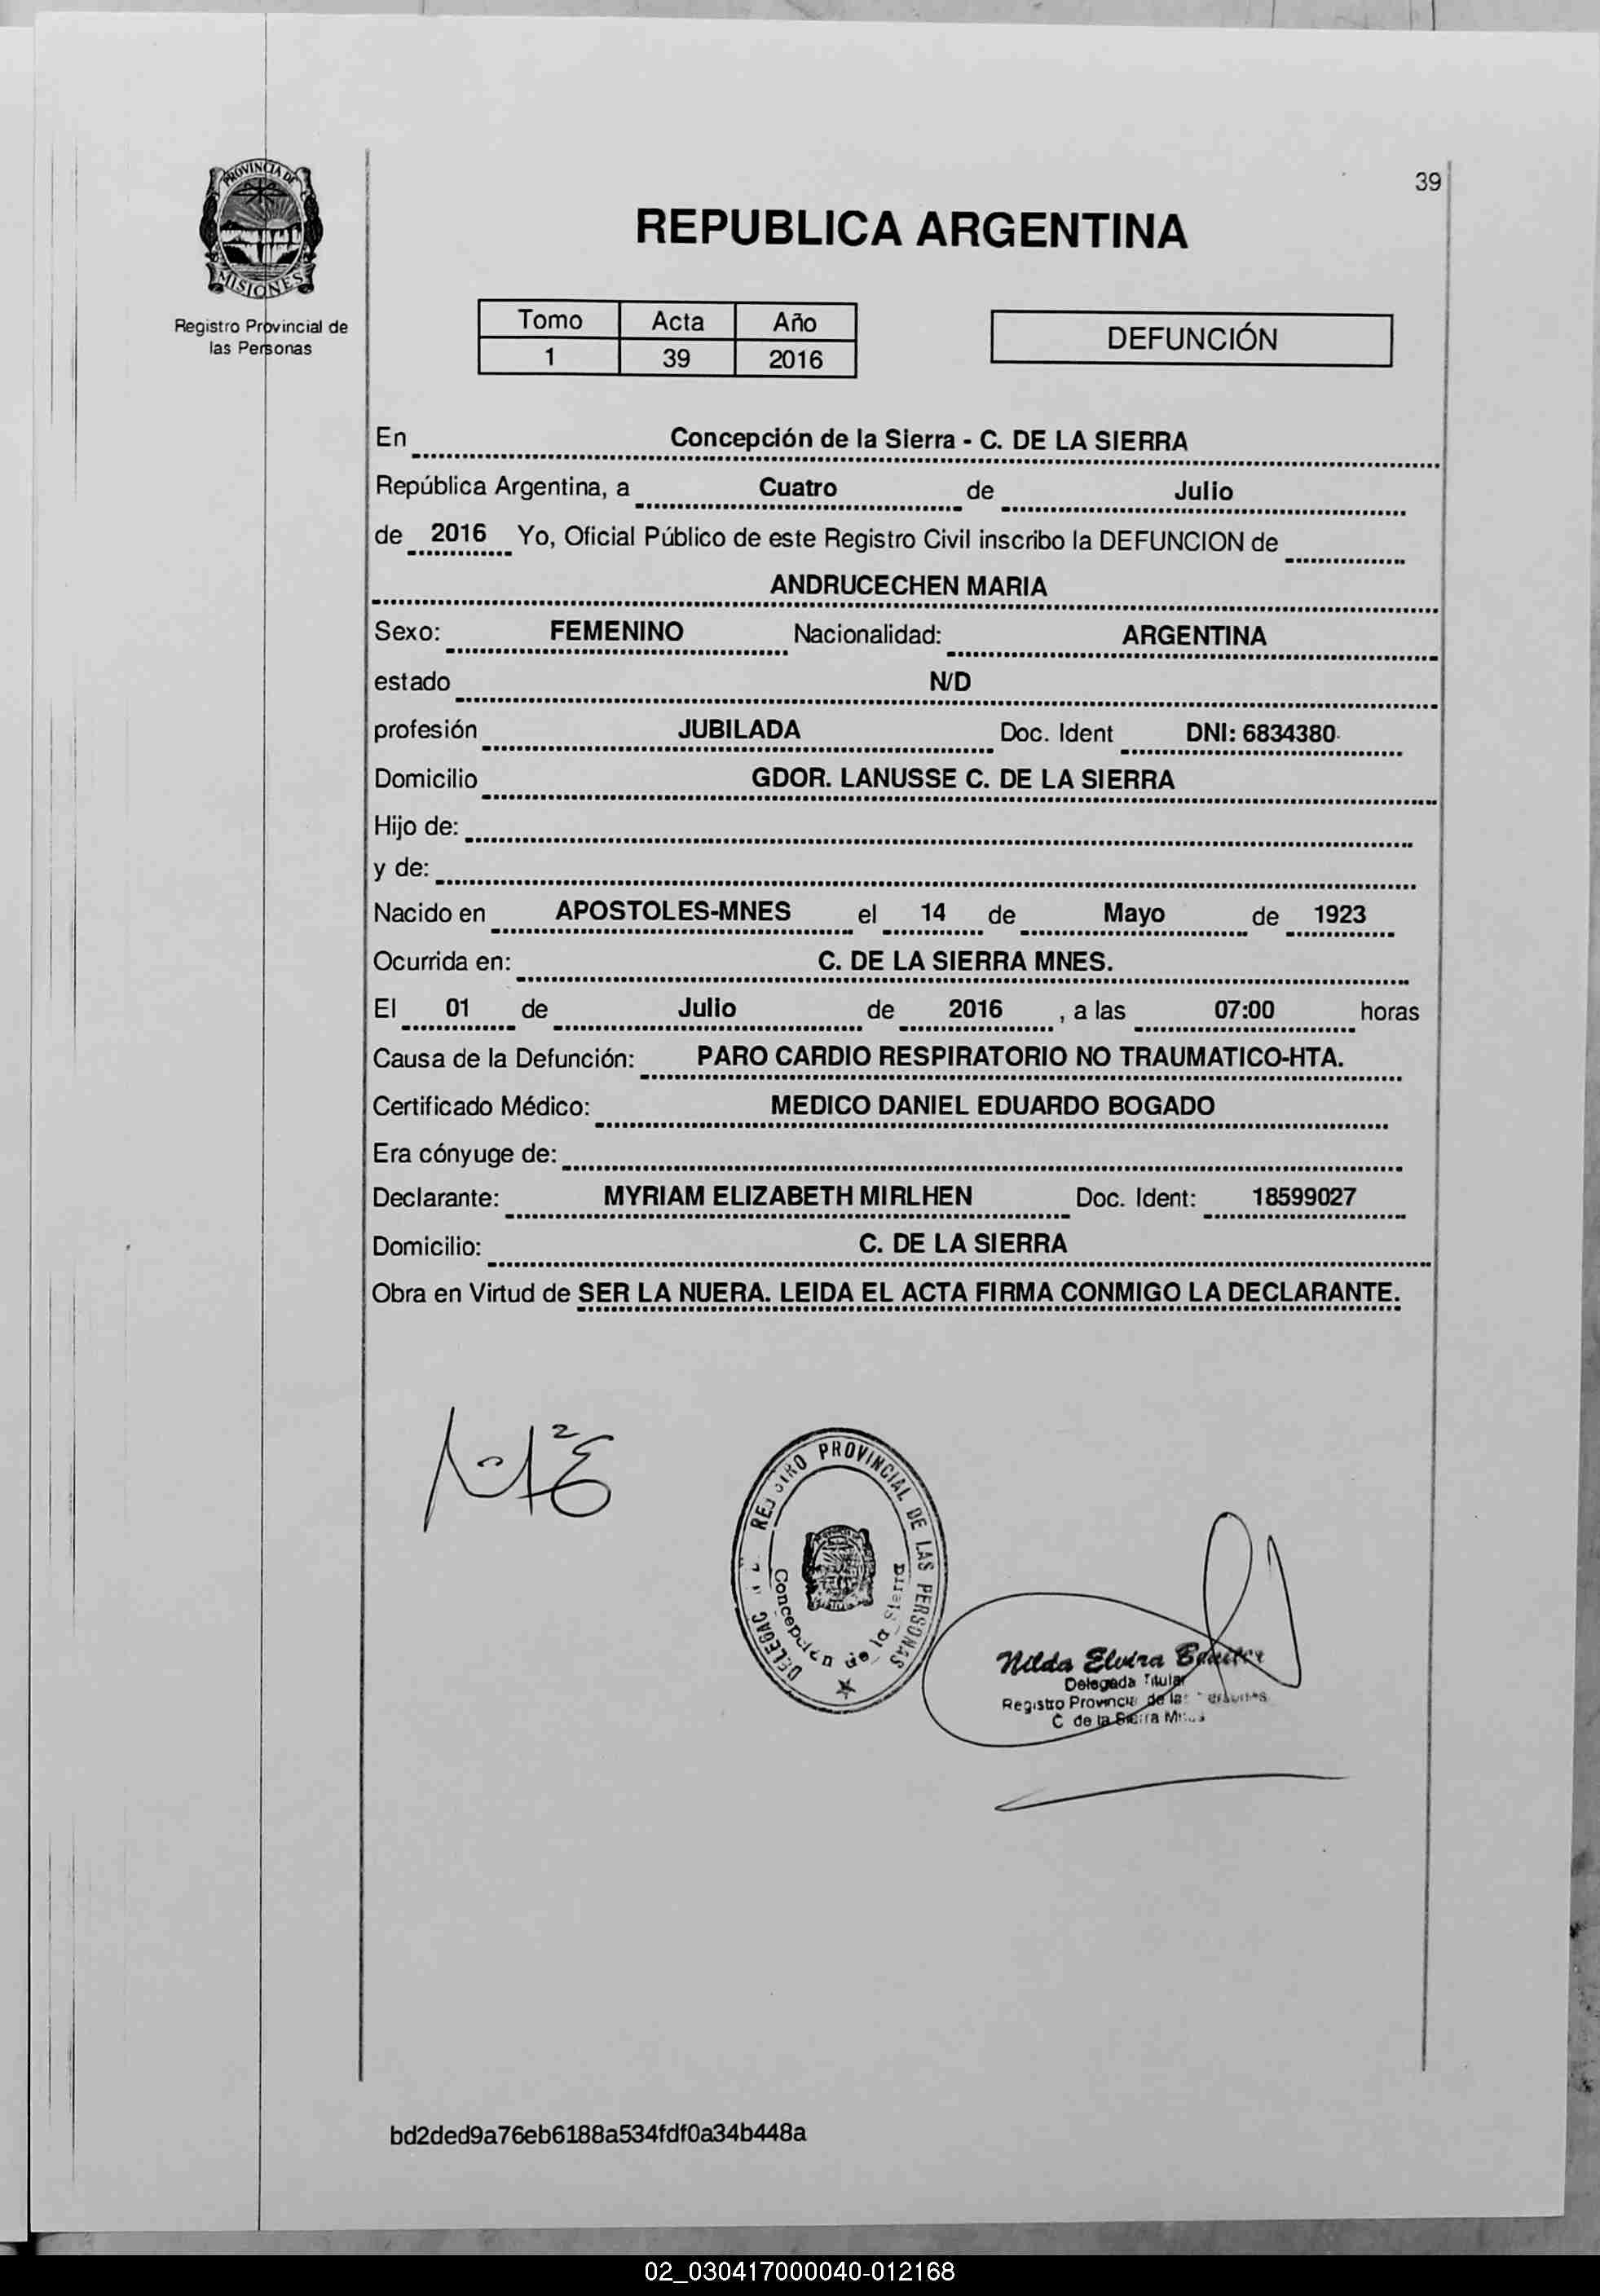 39
PROVINCIA DE
MISIONES
Registro Provincial de
las Personas
REPUBLICA ARGENTINA
Tomo Acta Año
1 39 2016
DEFUNCIÓN
En Concepción de la Sierra - C. DE LA SIERRA
República Argentina, a Cuatro de Julio
de 2016 Yo, Oficial Público de este Registro Civil inscribo la DEFUNCION de
ANDRUCECHEN MARIA
Sexo: FEMENINO Nacionalidad: ARGENTINA
estado N/D
profesión JUBILADA Doc. Ident DNI: 6834380
Domicilio GDOR. LANUSSE C. DE LA SIERRA
Hijo de:
y de:
Nacido en APOSTOLES-MNES el 14 de Mayo de 1923
Ocurrida en: C. DE LA SIERRA MNES.
El 01 de Julio de 2016 , a las 07:00 horas
Causa de la Defunción: PARO CARDIO RESPIRATORIO NO TRAUMATICO-HTA.
Certificado Médico: MEDICO DANIEL EDUARDO BOGADO
Era cónyuge de:
Declarante: MYRIAM ELIZABETH MIRLHEN Doc. Ident: 18599027
Domicilio: C. DE LA SIERRA
Obra en Virtud de SER LA NUERA. LEIDA EL ACTA FIRMA CONMIGO LA DECLARANTE.
PROVINCIAL DE LAS PERSONAS
Concepción de la Sierra
Nilda Elvira
Delegada Titular
Registro Provincial de las Personas
C de la Sierra
bd2ded9a76eb6188a534fdf0a34b448a
02_030417000040-012168